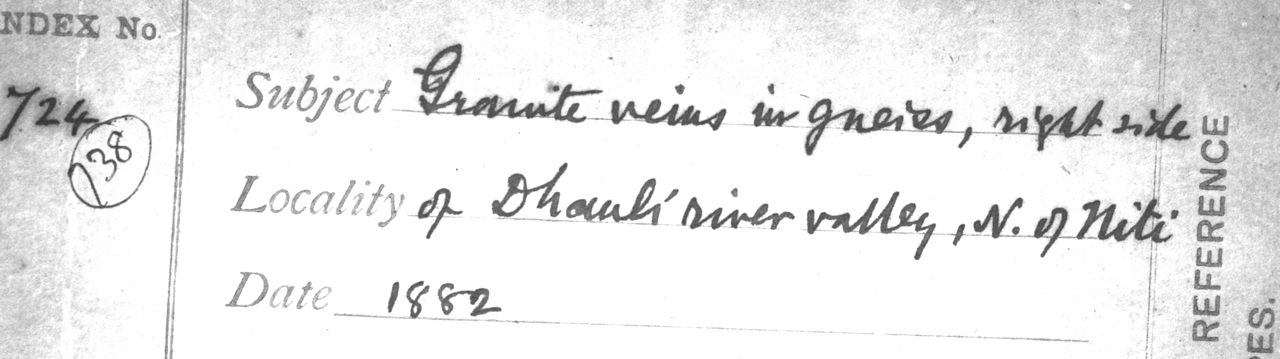 NDEX No.
724
738
Subject Granite veins in gneiss, right side
Locality of Dhauli river valley, N. of Niti
Date 1882
REFERENCE
ES.